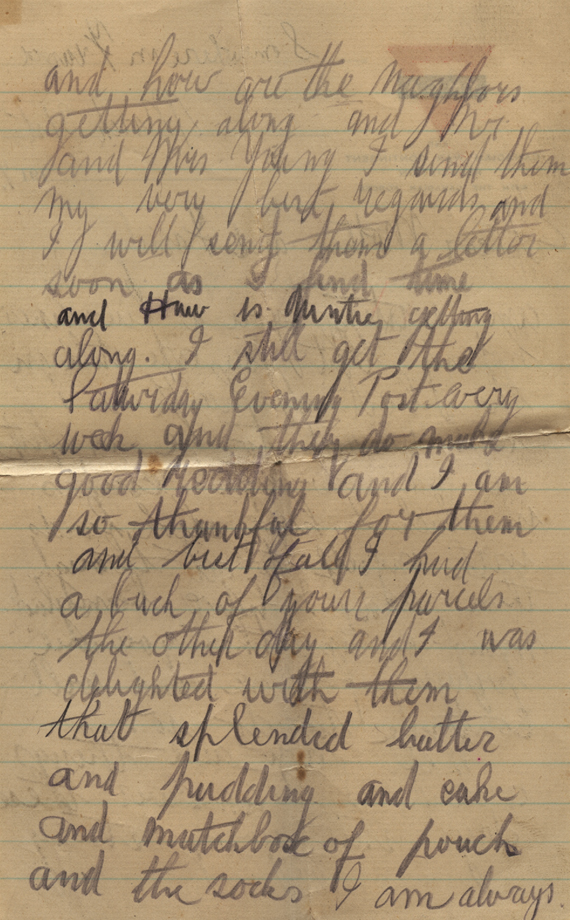 and how are the neighbors
getting along and Mr
and Mrs Young I send them
my very best regards and
I will send them a letter
soon as I find time
and How is Auntie getting
along. I still get the
Saturday Evening Post every
week and they do make
good reading and I am
so thankful for them
and best of all I had
a of your parcels
the other day and I was
delighted with them
that splended butter
and pudding and cake
and matchbox of pouch
and the socks I am always